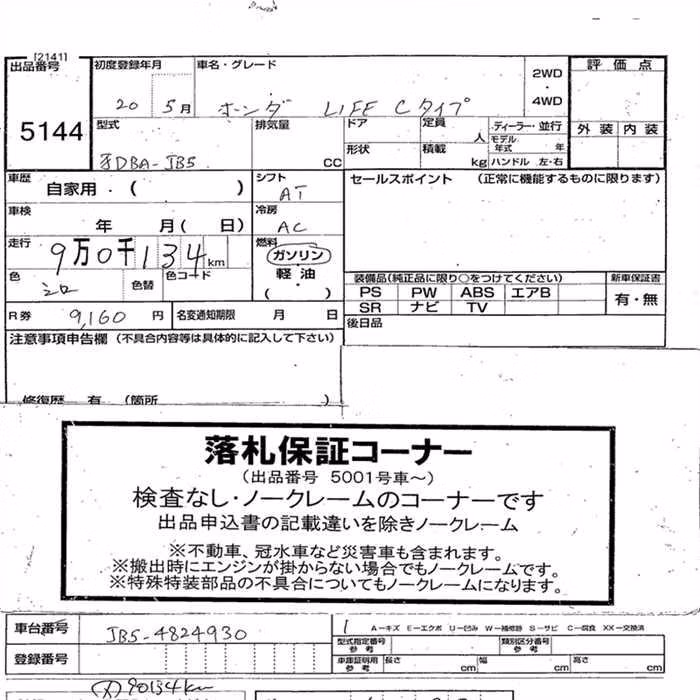 [2141]
出品番号
5144
初度登録年月
20 5月
車名・グレード
ホンダ LIFE Cタイプ
2WD
・
4WD
評価点
外装 内装
型式
DBA-JB5
排気量
CC
ドア
形状
定員
人
積載
kg
ディーラー・並行
モデル年式 年
ハンドル 左・右
車歴
自家用・( )
シフト
AT
セールスポイント (正常に機能するものに限ります)
車検
年 月( 日)
冷房
AC
走行
9万0千134km
燃料
ガソリン
・
軽油
( )
色
シロ
色替
色コード
装備品(純正品に限り○をつけてください)
PS PW ABS エアB
SR ナビ TV
新車保証書
有・無
R券 9,160 円
名変通知期限 月 日
後日品
注意事項申告欄 (不具合内容等は具体的に記入して下さい)
修復歴 有 (箇所 )
落札保証コーナー
(出品番号 5001号車~)
検査なし・ノークレームのコーナーです
出品申込書の記載違いを除きノークレーム
※不動車、冠水車など災害車も含まれます。
※搬出時にエンジンが掛からない場合でもノークレームです。
※特殊特装部品の不具合についてもノークレームになります。
車台番号
JB5-4824930
登録番号
1
A−キズ E−エクボ U−凹み W−補修跡 S−サビ C−腐食 XX−交換済
型式指定番号
参考
類別区分番号
参考
車庫証明用
参考
長さ cm
幅 cm
高さ cm
90134km